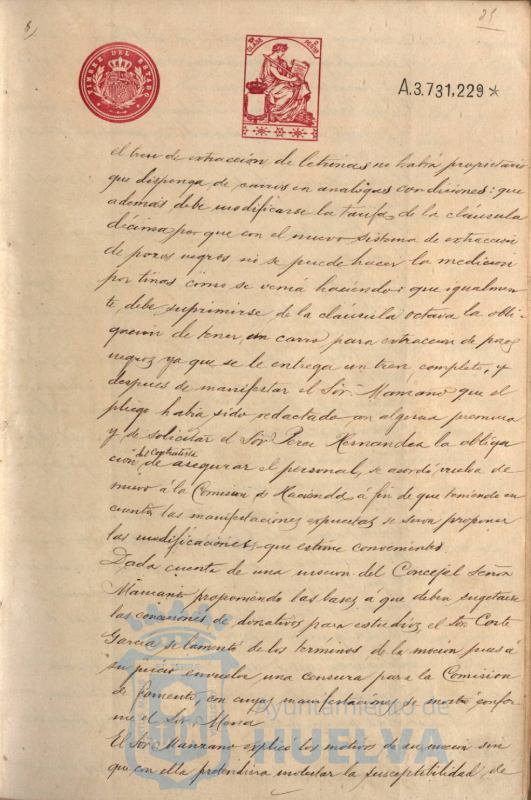 25
TIMBRE DEL ESTADO
CLASE
A.3.731,229*
el tren de extracción de letrinas no habrá propietario
que disponga de carros en análogas condiciones: que
además debe modificarse la tarifa de la cláusula
décima por que con el nuevo sistema de extracción
de pozos negros no se puede hacer la medición
por tinas como se venia haciendo: que igualmen
te debe suprimirse de la cláusula octava la obli-
gación de tener un carro para extracción de pozos
negros ya que se le entrega un tren completo, y
después de manifestar el Sor. Manzano que el
pliego habia sido redactado con alguna premura
y de solicitar el Sor. Perez Hernandez la obliga
ción del contratista de asegurar el personal, se acordó vuelva de
nuevo á la Comisión de Hacienda á fin de que teniendo en
cuenta las manifestaciones expuestas se sirva proponer
las modificaciones que estime convenientes
Dada cuenta de una moción del Concejal Señor
Manzano proponiendo las bases á que deben sugetarse
las concesiones de donativos para estudios, el Sor. Corte
Garcia se lamentó de los términos de la moción pues a
su juicio envuelve una censura para la Comisión
de Fomento, con cuyas manifestaciones se mostró confor-
me el Sor. Mora
El Sor. Manzano explicó los motivos de su moción sin
que con ella pretendiera molestar la susceptibilidad, de
Ayuntamiento de
HUELVA